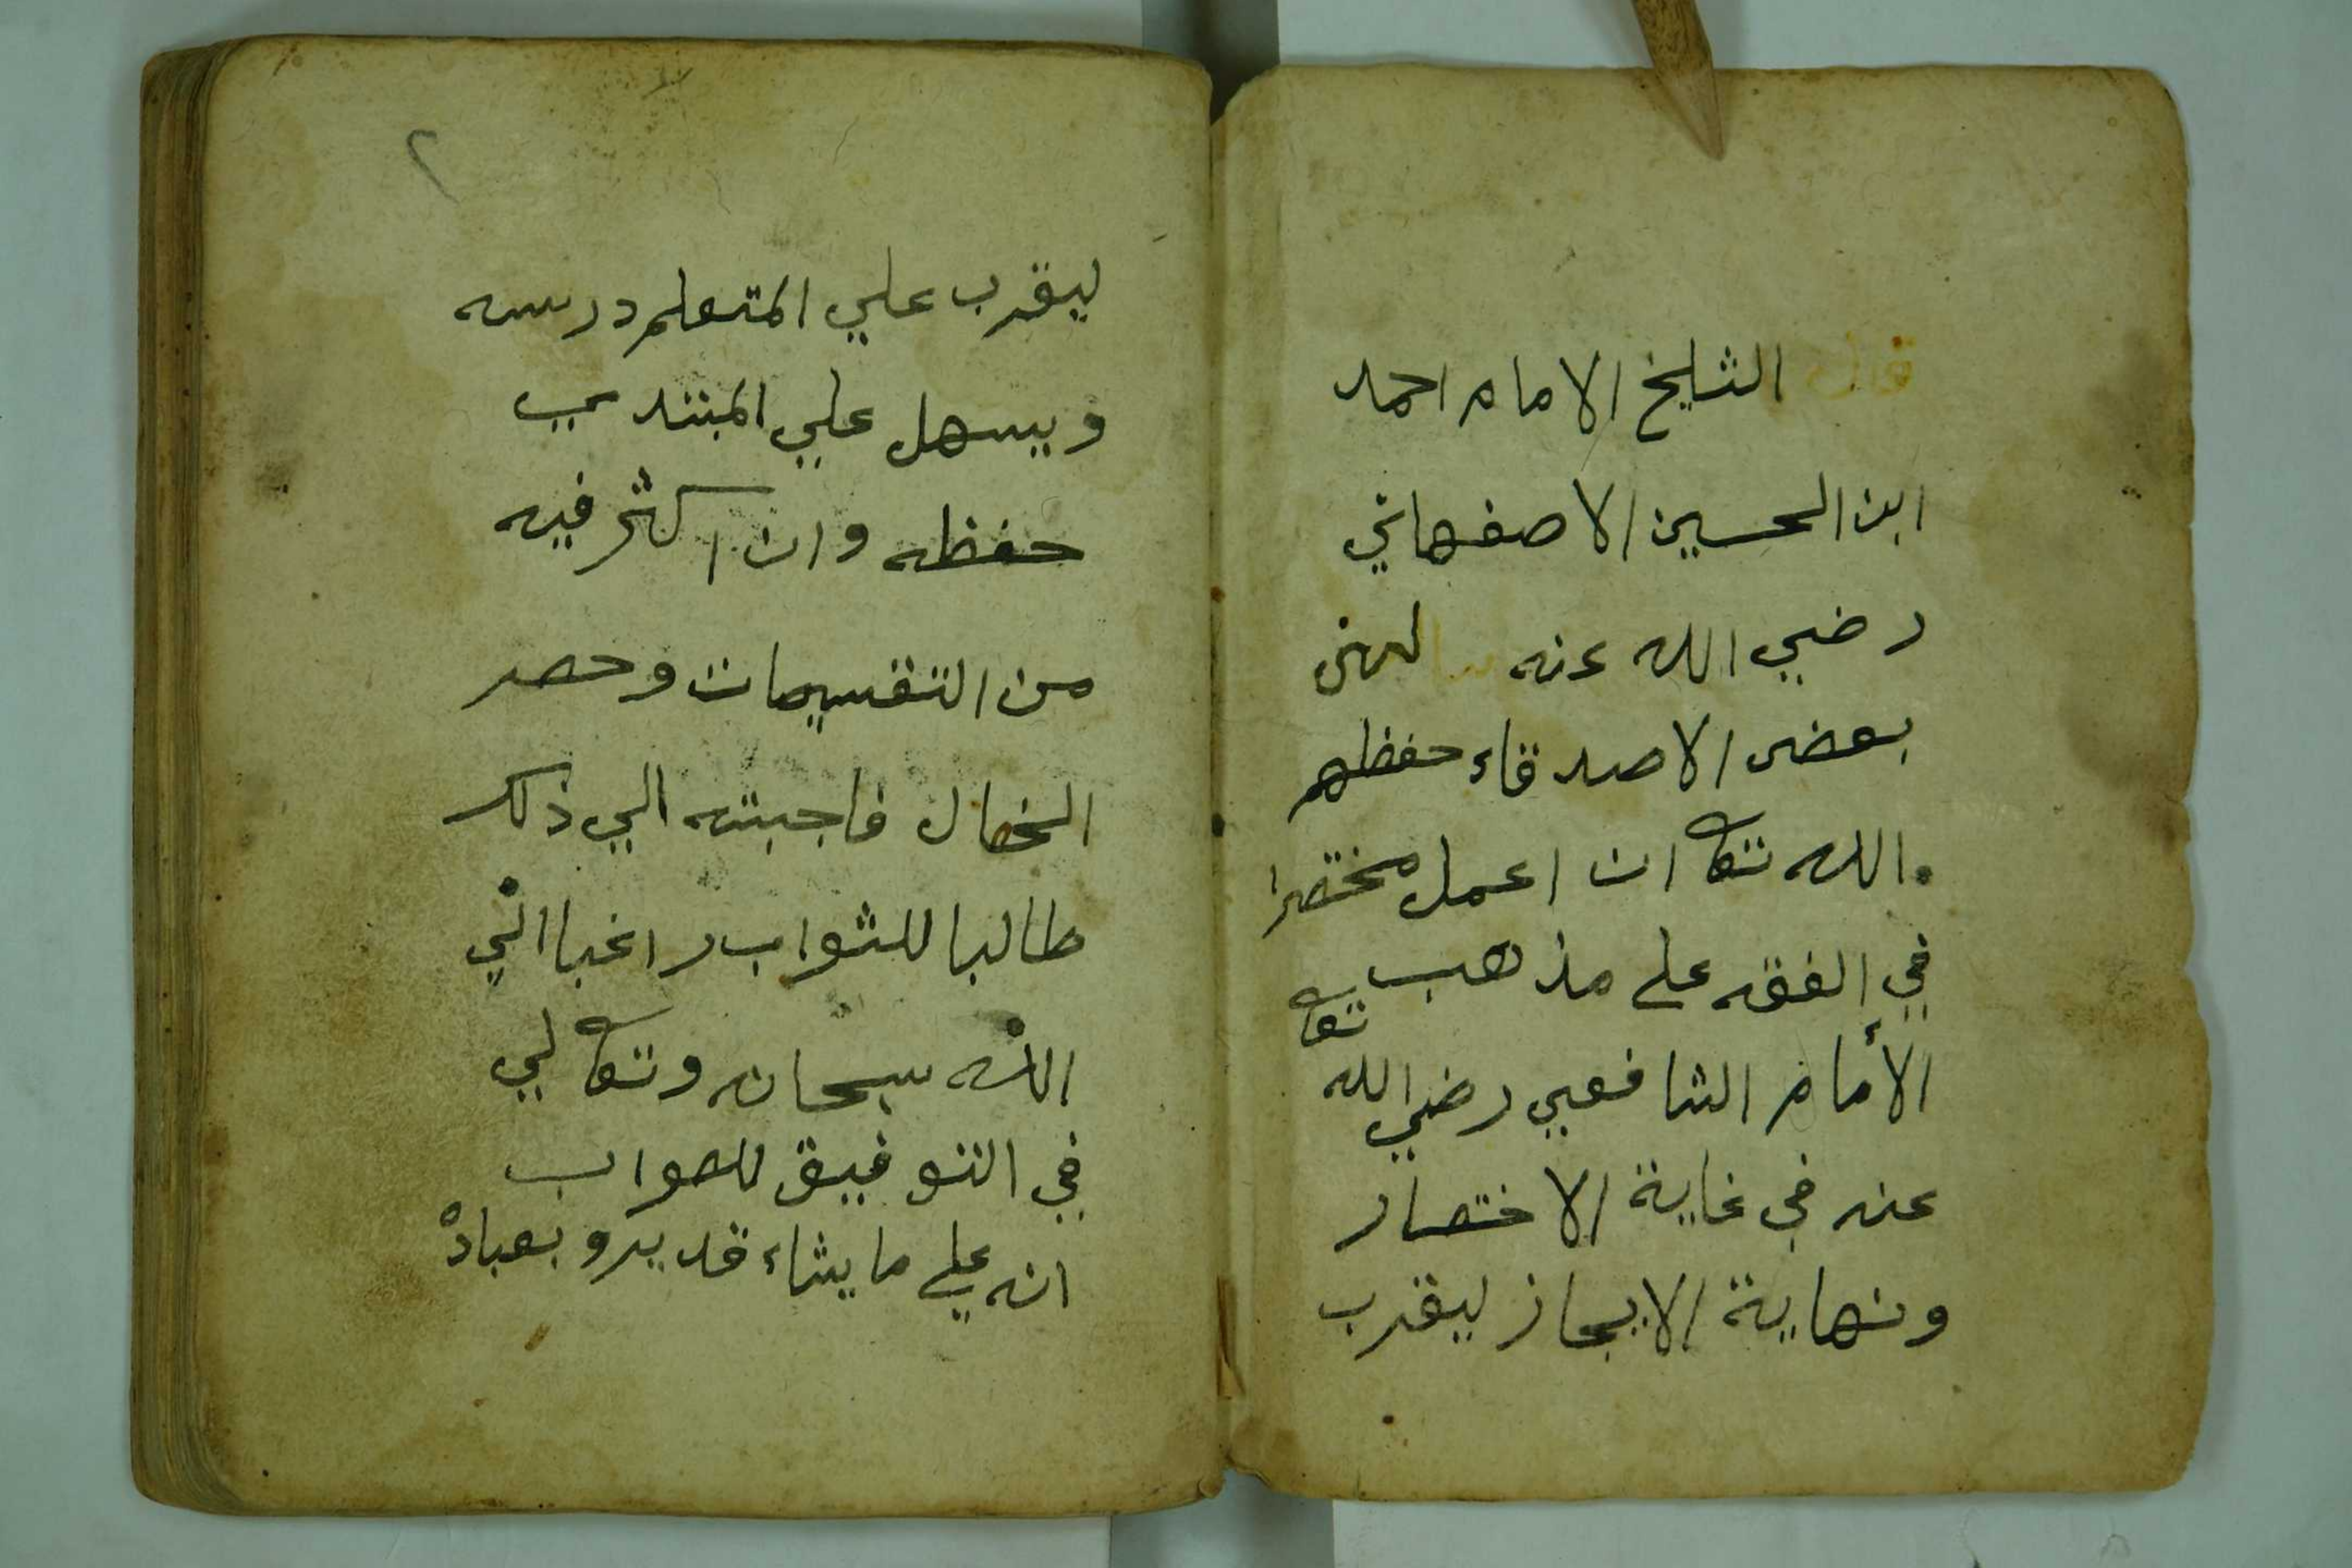 قال الشيخ الامام احمد
ابن الحسين الاصفهاني
رضي الله عنه سالني
بعض الاصدقاء حفظهم
الله تعا ان اعمل مختصرا
في الفقه على مذهب
الأمام الشافعي رضي الله تعا
عنه في غاية الاختصار
ونهاية الايجاز ليقرب
٢
ليقرب علي المتعلم درسه
ويسهل علي المبتدي
حفظه وان اكثر فيه
من التقسيمات وحصر
الخصال فاجبته الي ذلك
طالبا للثواب راغبا الي
الله سبحانه وتعالي
في التوفيق للصواب
انه علي ما يشاء قدير وبعباده